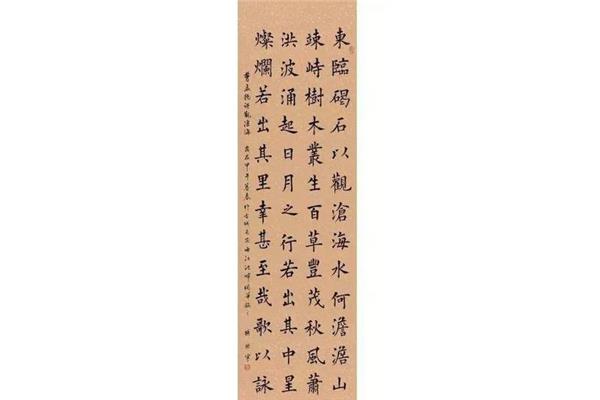 東臨碣石以觀滄海水何澹澹山
竦峙樹木叢生百草豐茂秋風蕭
洪波涌起日月之行若出其中星
燦爛若出其里幸甚至哉歌以詠
曹孟德詩觀滄海 歲在甲午暮春